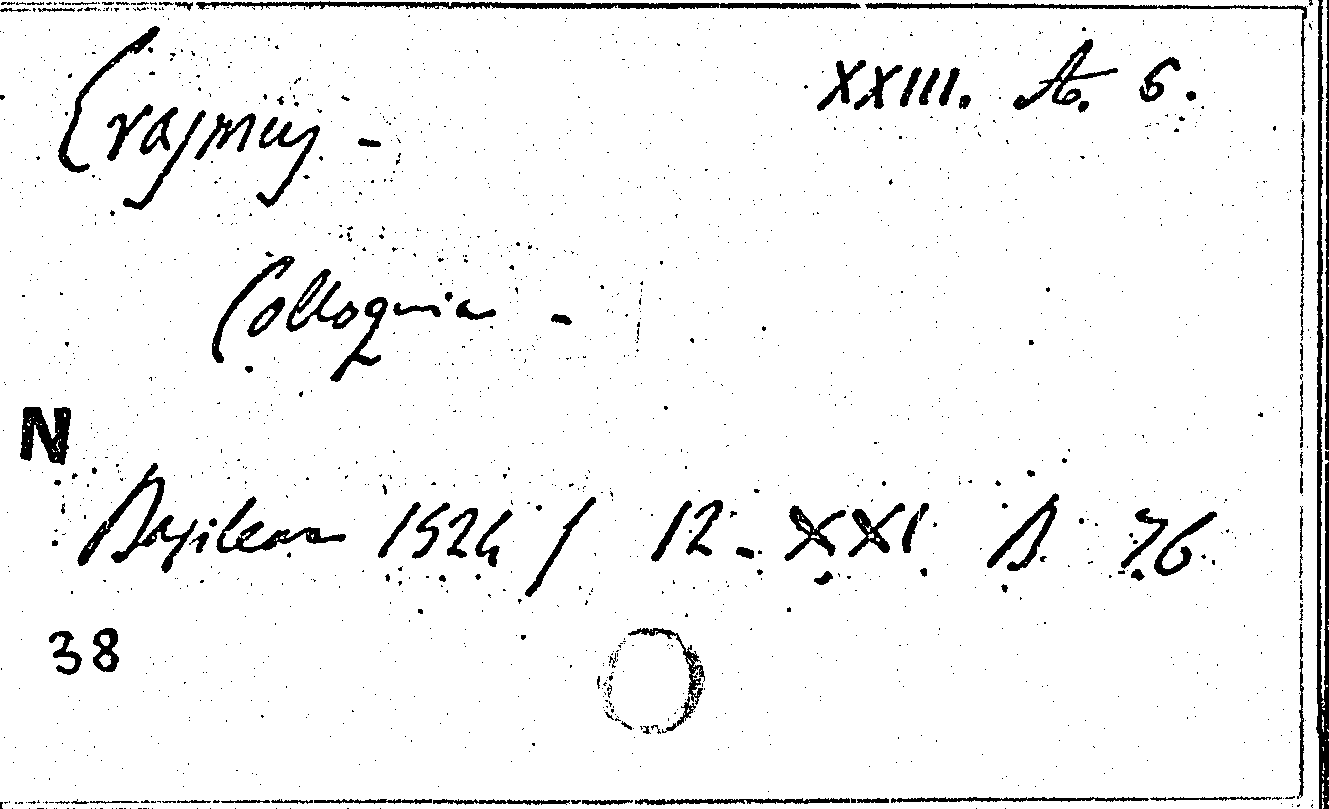 Erasmus - XXIII. A. 6.
Colloquia -
N
Basileae 1524 / 12 - XXI B 76
38